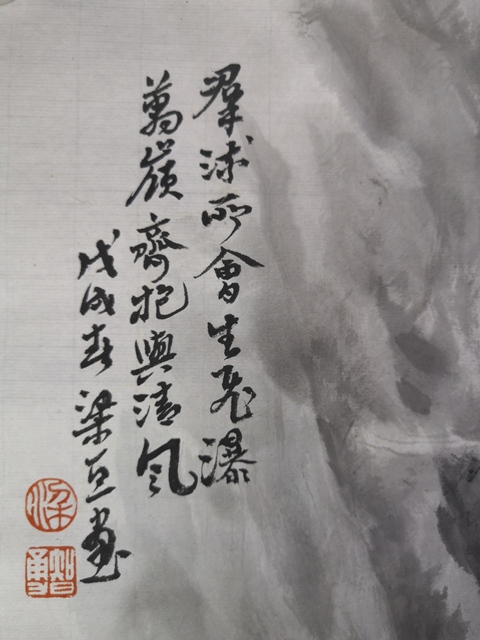 羣所會生飛瀑
萬嶺齊抱與清風
戊戌春梁亘畫
梁
智勇